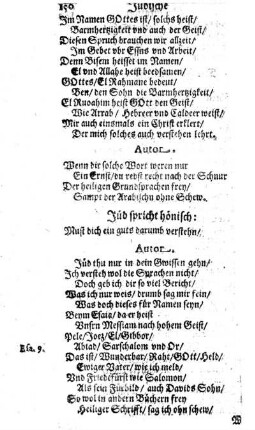 150 Jüdische
Im Namen GOttes ist/ solchs heist/
Barmhertzigkeit vnd auch der Geist/
Diesen Spruch brauchen wir allzeit/
Im Gebet vbr Essns vnd Arbeit/
Denn Bisem heisset im Namen/
El vnd Allahe heist beedsamen/
GOttes/ El Rahmane bedeut/
Ben/ den Sohn die Barmhertzigkeit/
El Ruoahim heist GOtt den Geist/
Wie Arrab/ Hebreer vnd Caldeer weist/
Mir auch einsmals ein Christ erklert/
Der mich solches auch verstehen lehrt.
Autor.
Wenn dir solche Wort weren nur
Ein Ernst/ du redst recht nach der Schnur
Der heiligen Grundsprachen frey/
Sampt der Arabischn ohne Schew.
Jüd spricht hönisch:
Must dich ein guts darumb verstehn/
Autor.
Jüd thu nur in dein Gwissen gehn/
Ich versteh wol die Sprachen nicht/
Doch geb ich dir so viel Bericht/
Was ich nur weis/ drumb sag mir fein/
Was doch dieses für Namen seyn/
Beym Esaia/ da er heist
Vnsrn Messiam nach hohem Geist/
Pele/ Joetz/ El/ Gibbor/
Esa. 9. Abiad/ Sarschalom vnd Or/
Das ist/ Wunderbar/ Raht/ GOtt/ Held/
Ewiger Vater/ wie ich meld/
Vnd Friedefürst wie Salomon/
Als sein Fürbild/ auch Davids Sohn/
So wol in andern Büchern frey
Heiliger Schrifft/ sag ich ohn schew/